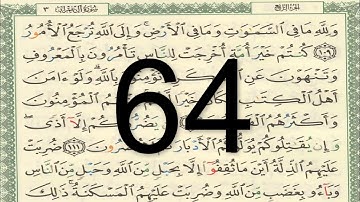 الجزء الرابع سُورَةُ آلِ عِمْرَانَ ٣
وَلِلَّهِ مَا فِي السَّمَٰوَٰتِ وَمَا فِي الْأَرْضِ ۚ وَإِلَى اللَّهِ تُرْجَعُ الْأُمُورُ
﴿١٠٩﴾ كُنتُمْ خَيْرَ أُمَّةٍ أُخْرِجَتْ لِلنَّاسِ تَأْمُرُونَ بِالْمَعْرُوفِ
وَتَنْهَوْنَ عَنِ بِاللَّهِ ۗ وَلَوْ ءَامَنَ
أَهْلُ الْكِتَٰبِ لَكَانَ خَيْرًا الْمُؤْمِنُونَ
وَأَكْثَرُهُمُ يَضُرُّوكُمْ إِلَّا أَذًى ۖ
وَإِن يُقَٰتِلُوكُمْ يُوَلُّوكُمُ الْأَدْبَارَ ﴿١١١﴾ ضُرِبَتْ
عَلَيْهِمُ الذِّلَّةُ أَيْنَ مَا ثُقِفُوا إِلَّا بِحَبْلٍ مِّنَ اللَّهِ وَحَبْلٍ مِّنَ النَّاسِ
وَبَآءُو بِغَضَبٍ مِّنَ اللَّهِ وَضُرِبَتْ عَلَيْهِمُ الْمَسْكَنَةُ ۚ ذَٰلِكَ
64